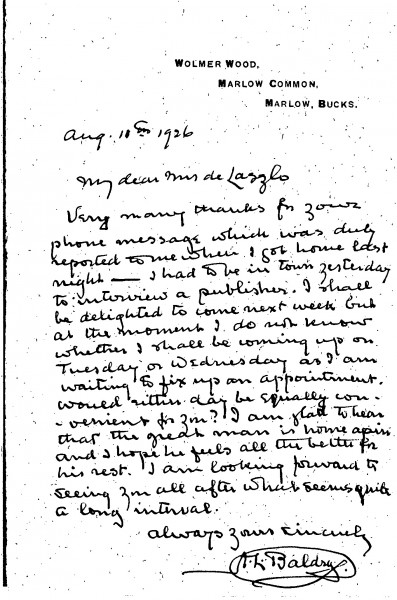 WOLMER WOOD,
MARLOW COMMON,
MARLOW, BUCKS.
Aug. 10th 1926
My dear Mrs de Laszlo
Very many thanks for your
phone message which was duly
reported to me when I got home last
night — I had to be in town yesterday
to interview a publisher. I shall
be delighted to come next week but
at the moment I do not know
whether I shall be coming up on
Tuesday or Wednesday as I am
waiting to fix up an appointment.
Would either day be equally con-
-venient for you? I am glad to hear
that the great man is home again
and I hope he feels all the better for
his rest. I am looking forward to
seeing you all after what seems quite
a long interval.
Always yours sincerely
A. L. Baldry.